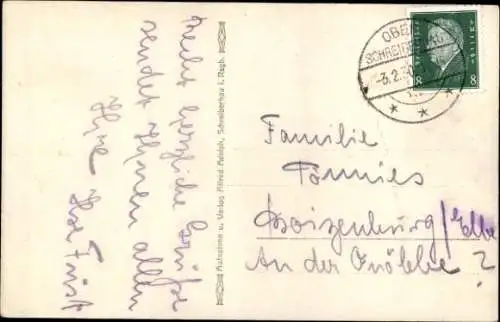 Recht herzliche Grüße
sendet Ihnen allen
Ihre
Aufnahme u. Verlag Alfred Adolph, Schreiberhau i. Rsgb.
OBER
SCHREIBERHAU
-3.2.30
8 8
Familie
Tönnies
Boizenburg/Elbe
An der Quöbbe ?